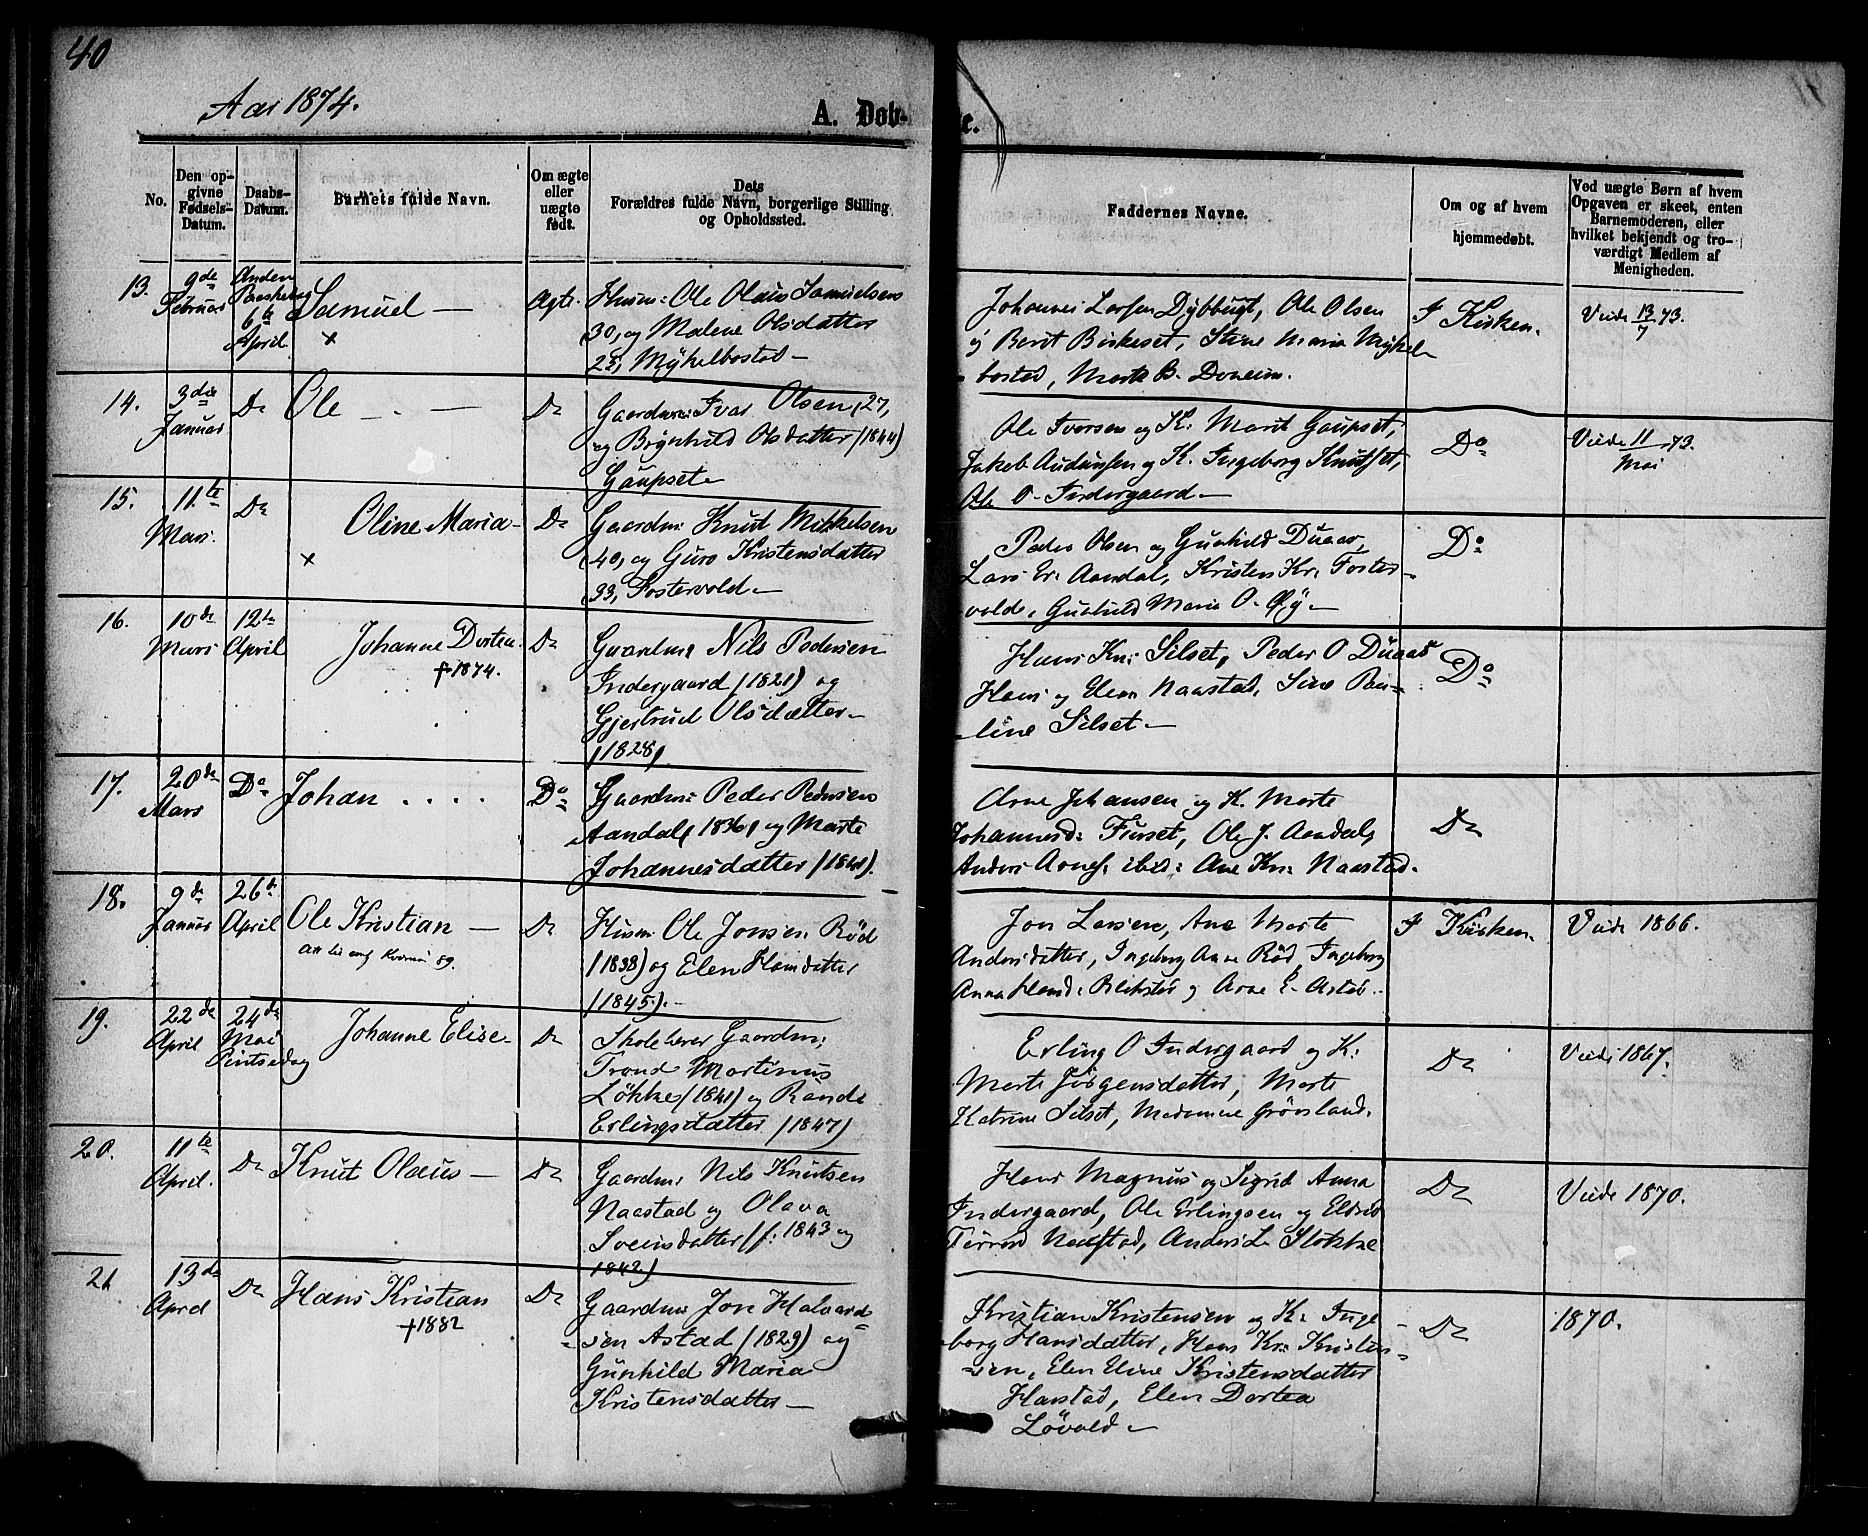 40
Aar 1874.
A. Døb-
te.
No.
Den op-
givne
Fødsels-
Datum.
Daabs-
Datum.
Barnets fulde Navn.
Om ægte
eller
uægte
født.
Dets
Forældres fulde Navn, borgerlige Stilling
og Opholdssted.
Faddernes Navne.
Om og af hvem
hjemmedøbt.
Ved uægte Børn af hvem
Opgaven er skeet, enten
Barnemoderen, eller
hvilket bekjendt og tro-
værdigt Medlem af
Menigheden.
13.
9de
Februar
Anden
Paaskedag
6te
April
Samuel —
×
Ægte.
Husm: Ole Olaus Samuelsen
30, og Malene Olsdatter
25, Myklebostad —
Johannes Larsen Dybbugt, Ole Olsen
og Berit Birkeset, Stine Maria Mykel-
bostad, Marth B. Doneim.
I Kirken.
Viede 13/7 73.
14.
3die
Januar
Do
Ole — . —
Do
Gaardm: Ivar Olsen, 27,
og Brynhild Olsdatter (1844)
Gaupset —
Ole Iversen og K: Marit Gaupset,
Jakob Audunsen og K. Ingeborg Knutset,
Ole O. Indergaard —
Do
Viede 11/Mai 73.
15.
11.te
Mars.
Do
Oline Maria —
×
Do
Gaardm: Knut Mikkelsen
40, og Guro Kristensdatter
33, Fostervold —
Peder Olsen og Gunhild Duaas,
Lars Er. Aandal, Kristen Kr: Foster-
vold, Gunhild Maria O. Øy —
Do
16.
10de
Mars
12te
April
Johanne Dorten.
†1874.
Do
Gaardm: Nils Pedersen
Indergaard (1821) og
Gjertrud Olsdatter —
(1828)
Hans Kn: Silset, Peder O Duaas
Hans og Elen Naastad, Sine Pau-
line Silset —
Do
17.
20de
Mars
Do
Johan . . . .
Do
Gaardm: Peder Pedersen
Aandal, 1836, og Marte
Johannesdatter (1841).
Arne Johansen og K. Marte
Johannesd: Furset, Ole J. Aandal,
Anders Arnes: ibid: Ane Kn: Naastad.
Do
18.
9de
Januar
26de
April
Ole Kristian —
Do
Husm: Ole Jonsen Röd
(1838) og Elen Hansdatter
(1845). —
Jon Larsen, Ane Marte
Andersdatter, Ingeborg Anne Röd, Ingeborg
Anna Hansd: Blikset og Arne E. Astad.
I Kirken.
Viede 1866.
19.
22de
April
24de
Mai
Pintsedag
Johanne Elise —
Do
Skolelærer Gaardm:
Trond Martinus
Lökke (1841) og Randi
Erlingsdatter (1847)
Erling O Indergaard og K:
Marte Jörgensdatter, Marte
Katrine Silset, Madamme Grönland.
Do
Viede 1867.
20.
11te
April.
Do
Knut Olaus —
Do
Gaardm: Nils Knutsen
Naastad og Olava
Sveinsdatter (f: 1843 og
1842)
Hans Magnus og Sigrid Anna
Indergaard, Ole Erlingsen og Eldrid
Naastad, Anders L. Stokke
Do
Viede 1870.
21
13de
April
Do
Hans Kristian
†1882
Do
Gaardm: Jon Halvard-
sen Astad (1829) og
Gunhild Maria
Kristensdatter —
Kristian Kristensen og K: Inge-
borg Hansdatter, Hans Kr: Kristen-
sen, Elen Eline Kristensdatter
Harstad, Elen Dortea
Lövold —
Do
1870.